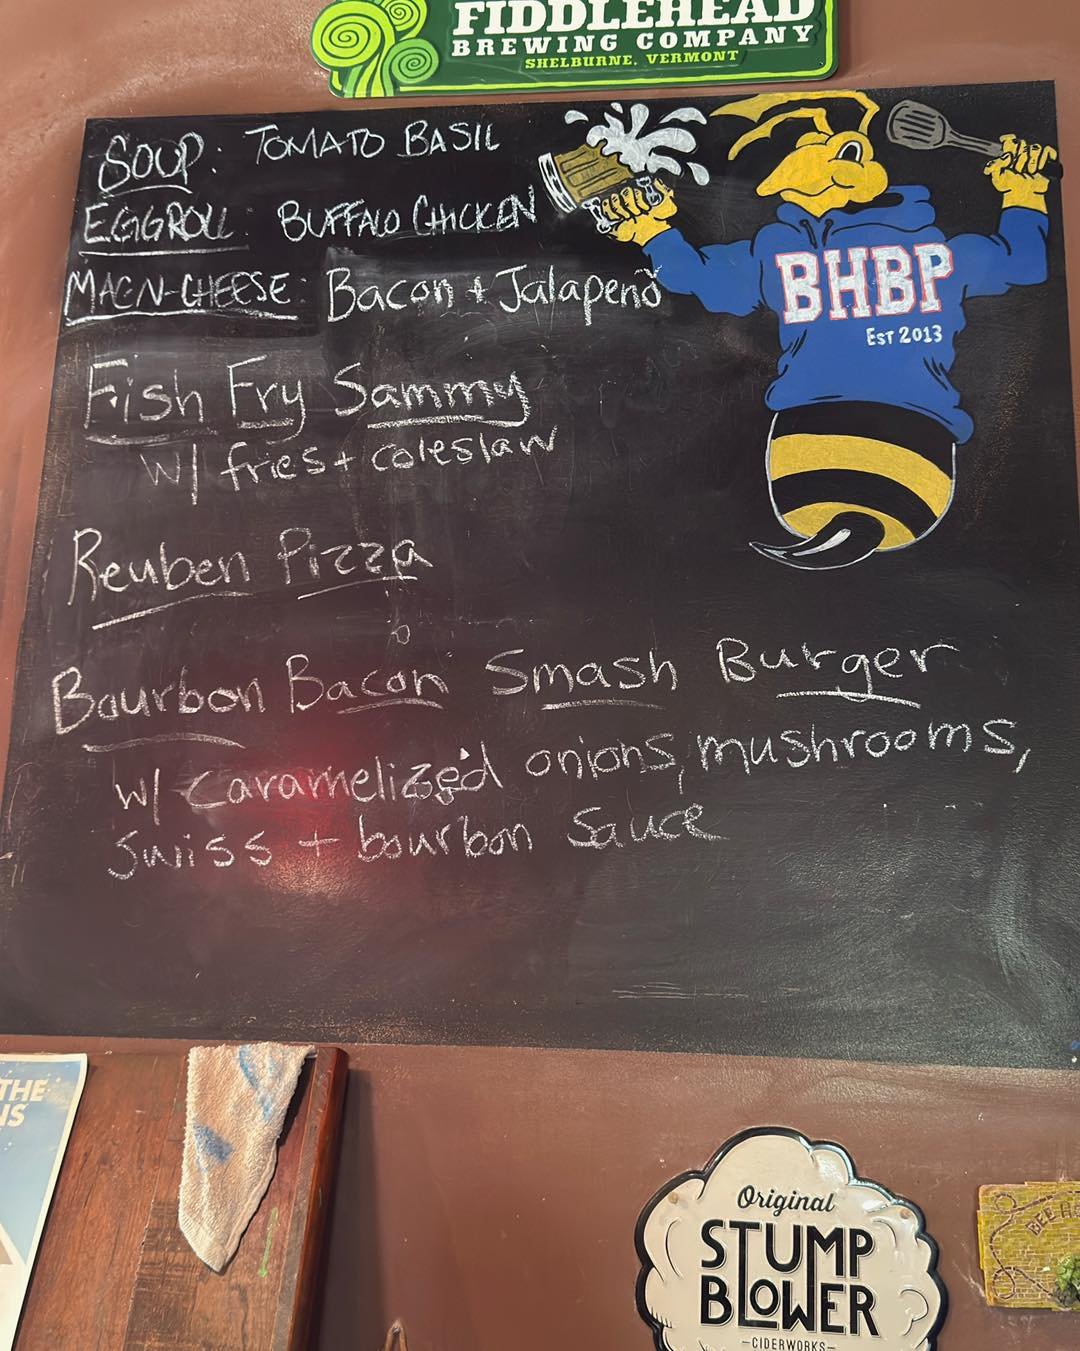 FIDDLEHEAD
BREWING COMPANY
SHELBURNE, VERMONT
SOUP: TOMATO BASIL
EGGROLL: BUFFALO CHICKEN
MACN-CHEESE: Bacon + Jalapeño
BHBP
EST 2013
Fish Fry Sammy
w/ fries + coleslaw
Reuben Pizza
Bourbon Bacon Smash Burger
w/ caramelized onions, mushrooms,
swiss + bourbon sauce
THE
NS
Original
STUMP
BLOWER
-CIDERWORKS-
BEE